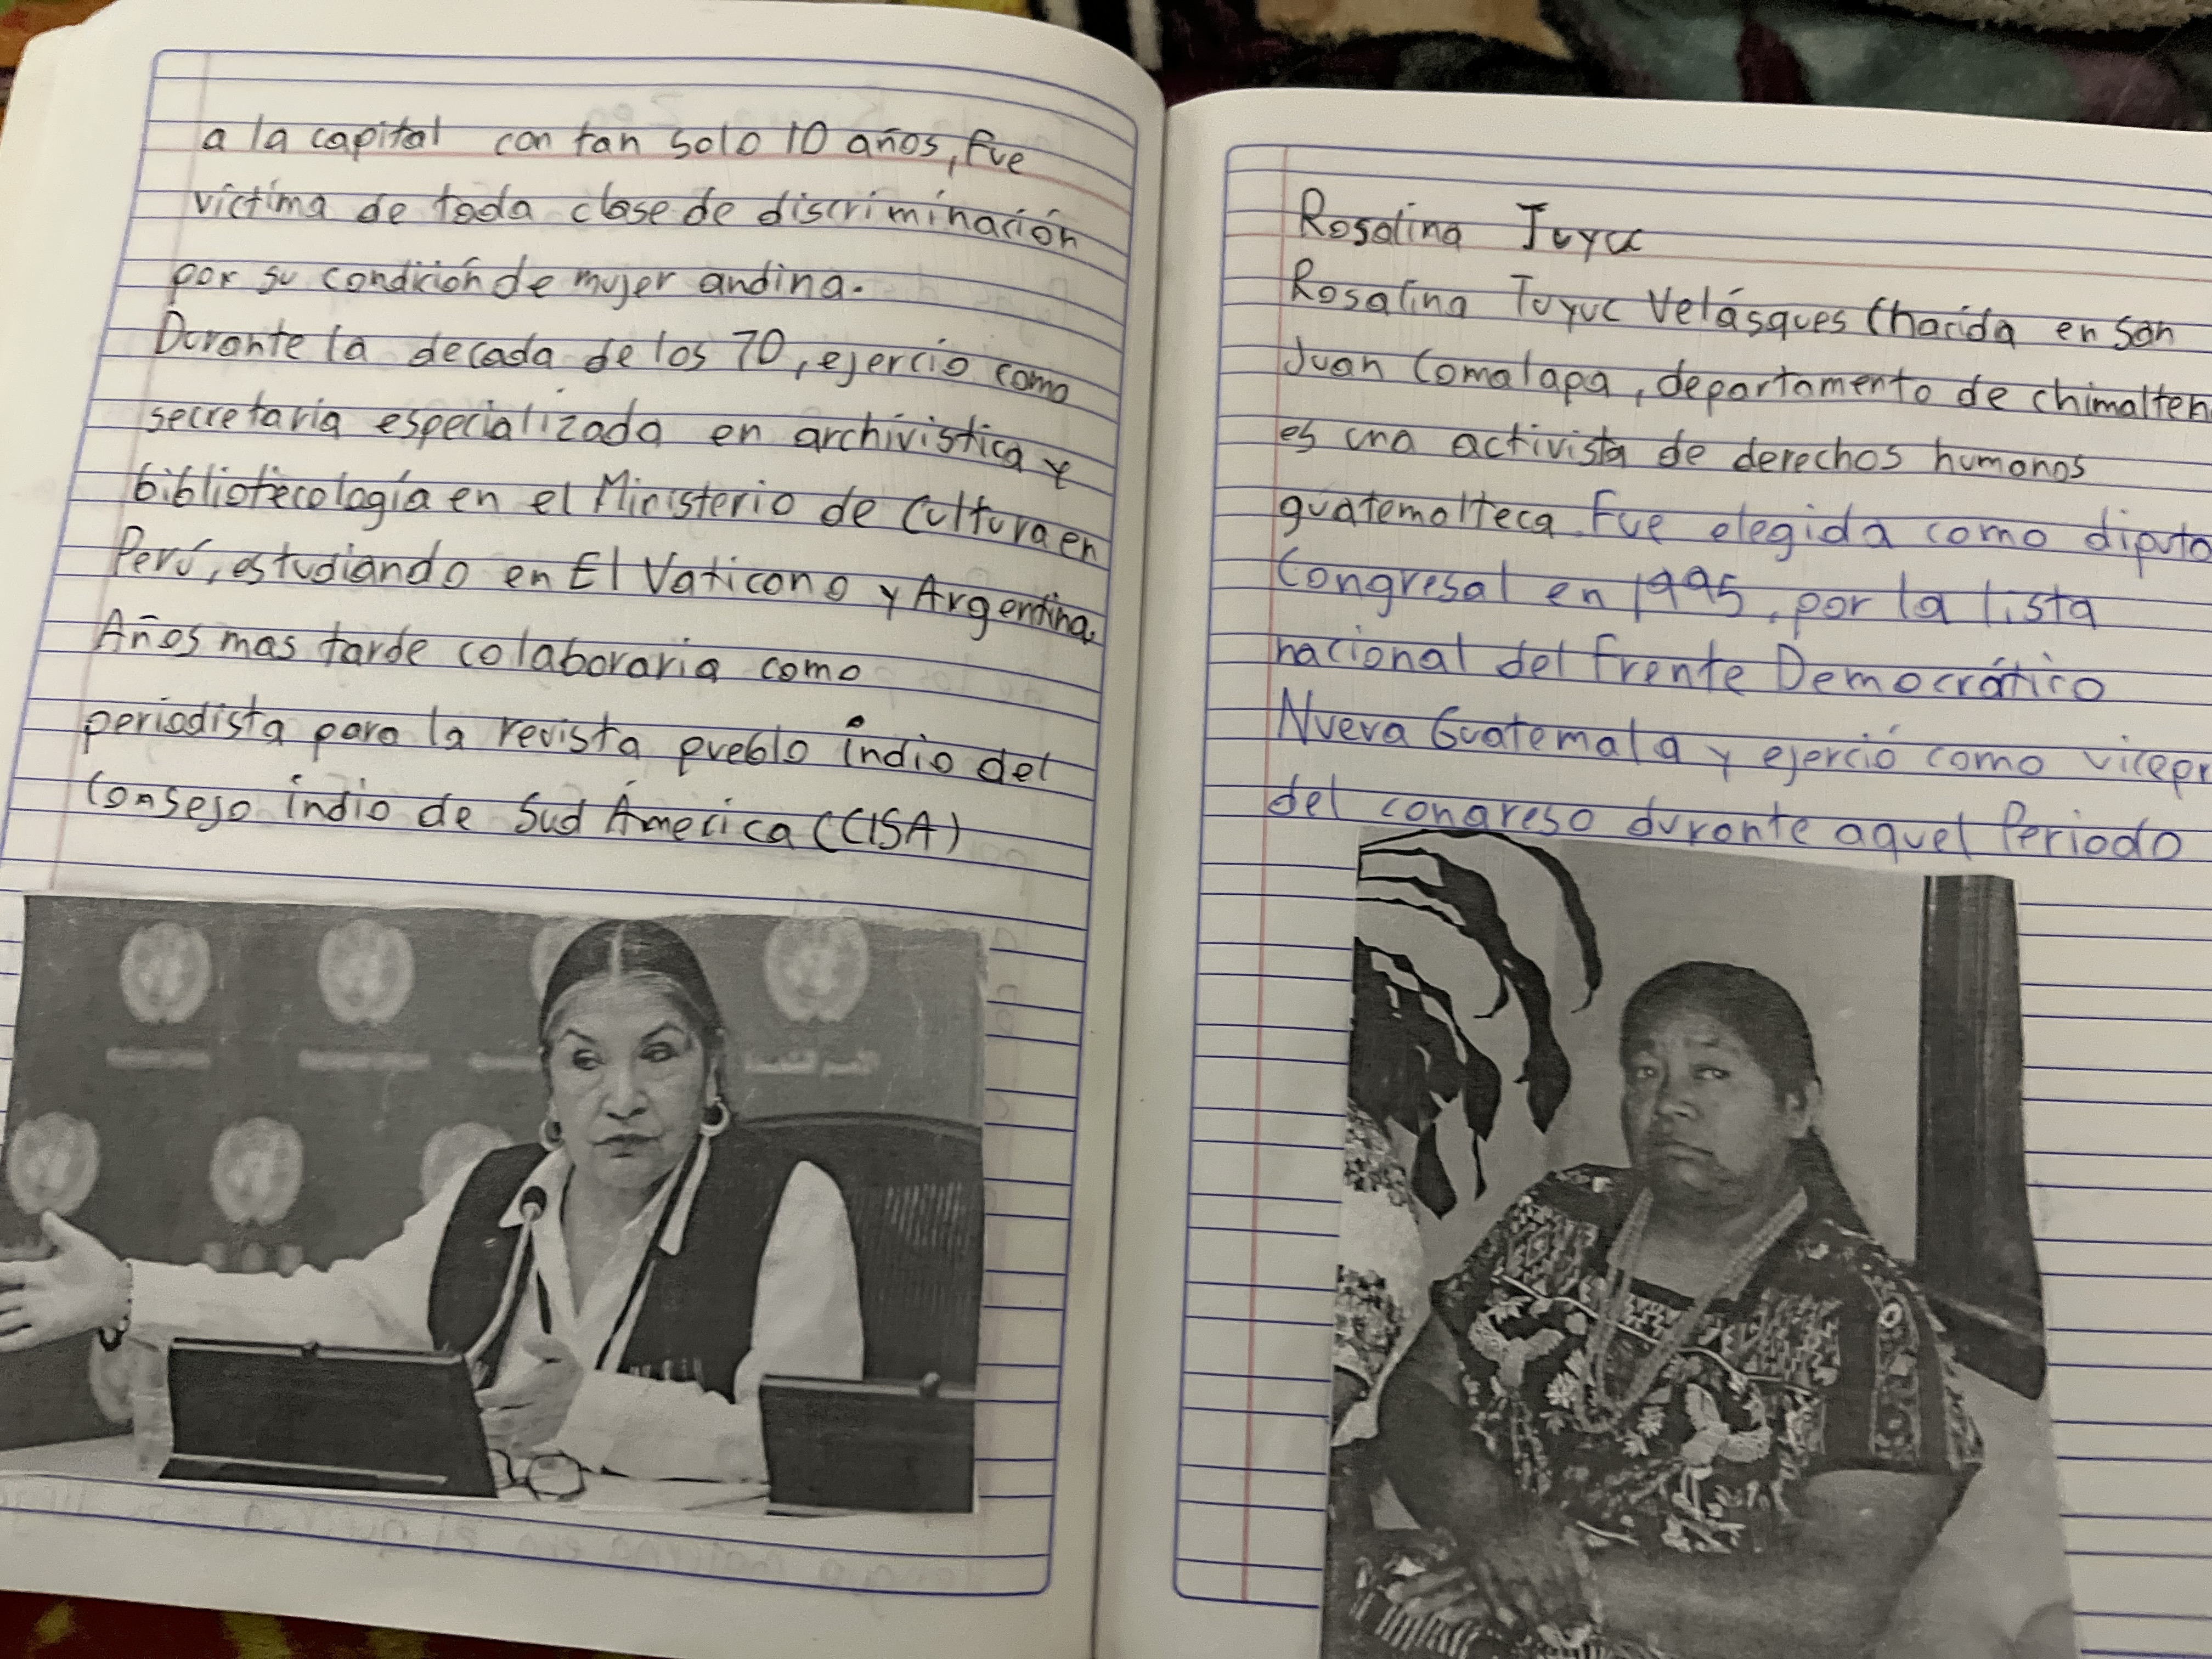 a la capital con tan solo 10 años, fue
víctima de toda clase de discriminación
por su condición de mujer andina.
Durante la decada de los 70, ejercio como
secretaria especializada en archivistica y
bibliotecología en el Ministerio de Cultura en
Perú, estudiando en El Vaticano y Argentina.
Años mas tarde colaboraria como
periodista para la revista pueblo indio del
Consejo indio de Sud América (CISA)
Rosalina Tuyuc
Rosalina Tuyuc Velásques (nacida en San
Juan Comalapa, departamento de chimalten
es una activista de derechos humanos
guatemalteca. Fue elegida como diputa
Congresal en 1995, por la lista
nacional del Frente Democrático
Nueva Guatemala y ejerció como vicepr
del congreso durante aquel Periodo